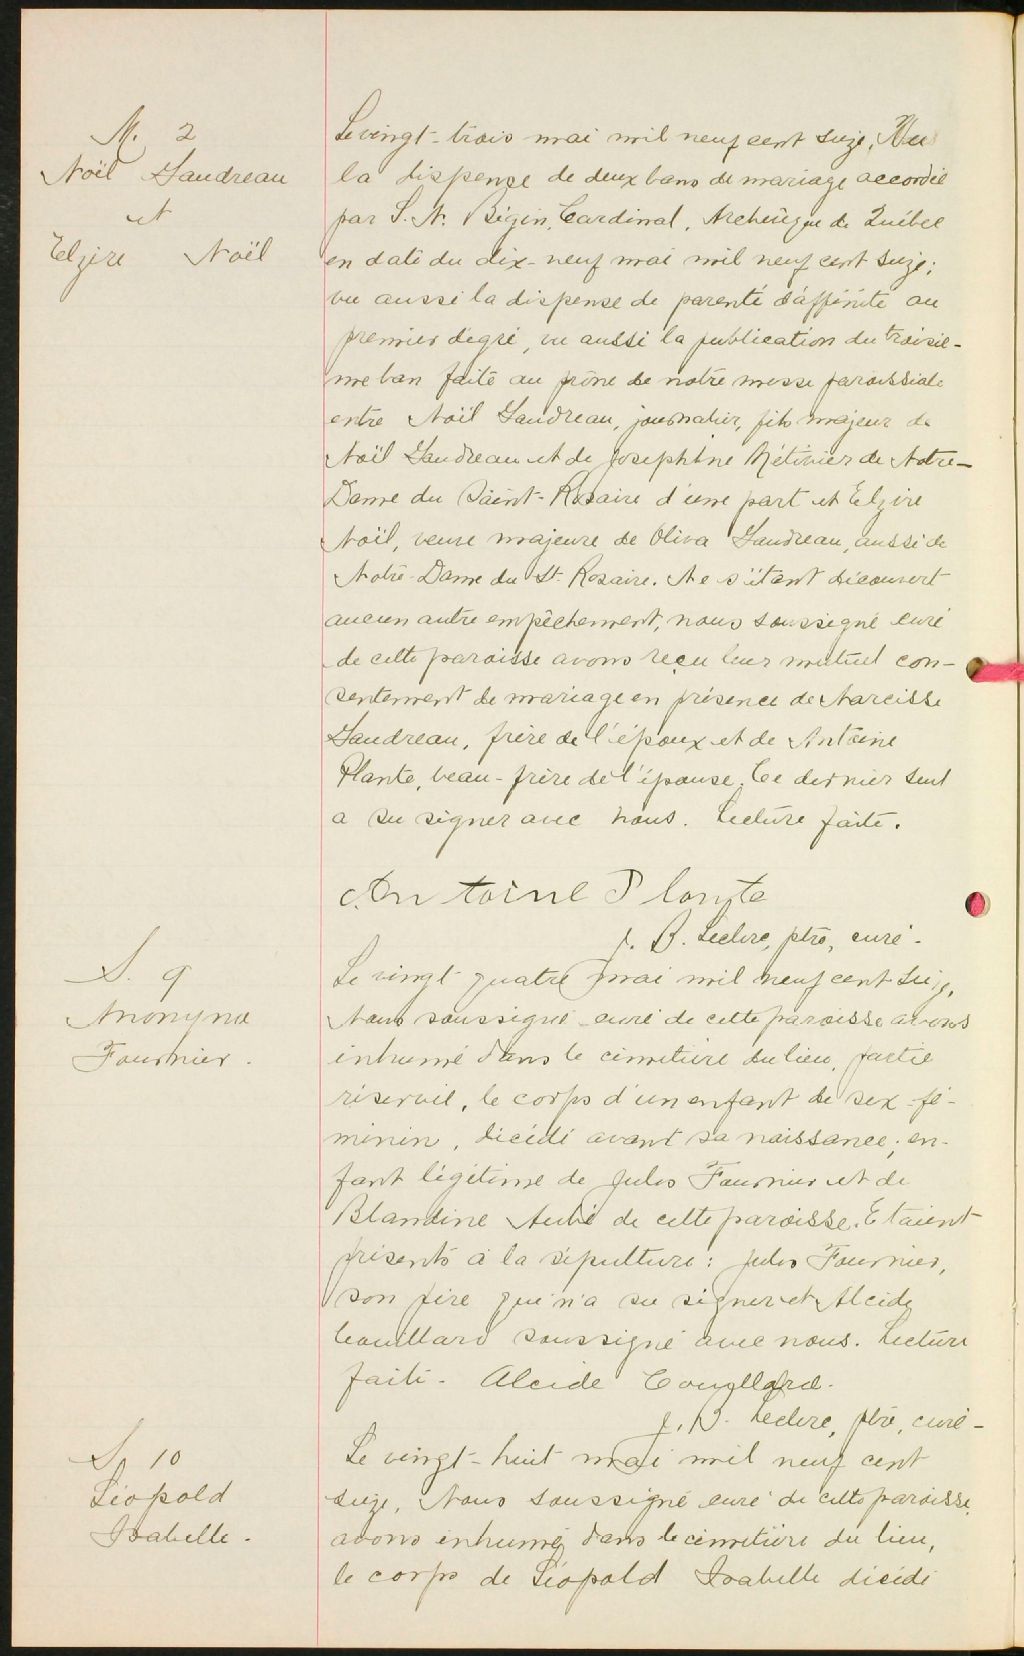 M. 2
Noël Gaudreau
et
Elzire Noël
Le vingt-trois mai mil neuf cent seize, Vu
la dispense de deux bans de mariage accordée
par S. N. Bégin, Cardinal, Archevêque de Québec
en date du dix-neuf mai mil neuf cent seize;
vu aussi la dispense de parenté d'affinité au
premier degré, vu aussi la publication du troisiè-
me ban faite au prône de notre messe paroissiale
entre Noël Gaudreau, journalier, fils majeur de
Noël Gaudreau et de Joséphine Métivier de Notre-
Dame du Saint-Rosaire d'une part et Elzire
Noël, veuve majeure de Oliva Gaudreau, aussi de
Notre-Dame du St. Rosaire. Ne s'étant découvert
aucun autre empêchement, nous soussigné curé
de cette paroisse avons reçu leur mutuel con-
sentement de mariage en présence de Narcisse
Gaudreau, frère de l'époux et de Antoine
Plante, beau-frère de l'épouse. Ce dernier seul
a su signer avec nous. Lecture faite.
Antoine Plante
J. B. Leclerc, ptre, curé.
S. 9
Anonyme
Fournier.
Le vingt quatre mai mil neuf cent seize,
Nous soussigné curé de cette paroisse avons
inhumé dans le cimetière du lieu, partie
réservée, le corps d'un enfant de sex-fé-
minin, décédé avant sa naissance, en-
fant légitime de Jules Fournier et de
Blandine Aubé de cette paroisse. Etaient
présents à la sépulture: Jules Fournier,
son père qui n'a su signer et Alcide
Couillard soussigné avec nous. Lecture
faite. Alcide Couillard.
J. B. Leclerc, ptre, curé-
S. 10
Léopold
Isabelle.
Le vingt-huit mai mil neuf cent
seize, Nous soussigné curé de cette paroisse,
avons inhumé dans le cimetière du lieu,
le corps de Léopold Isabelle décédé